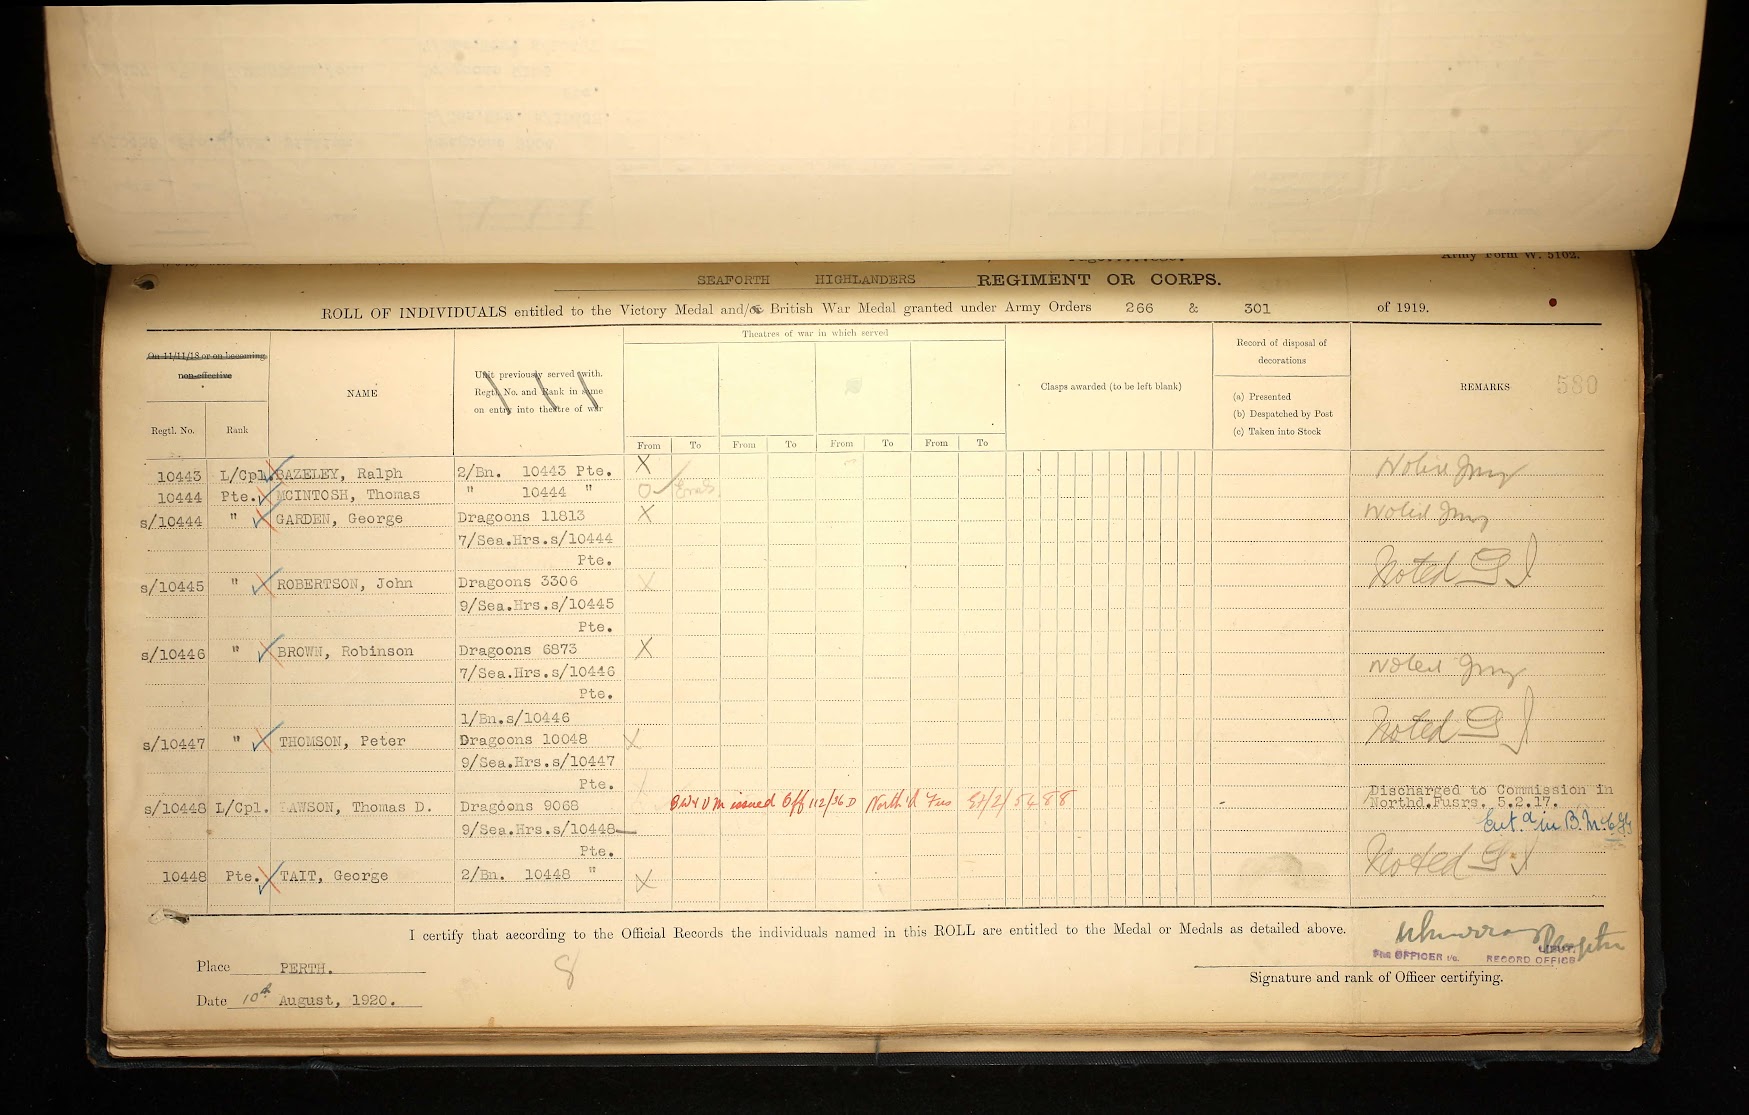 Army Form W. 5102.
SEAFORTH HIGHLANDERS REGIMENT OR CORPS.
ROLL OF INDIVIDUALS entitled to the Victory Medal and/or British War Medal granted under Army Orders 266 & 301 of 1919.
On 11/11/18 or on becoming non-effective
Regtl. No.
Rank
NAME
Unit previously served with.
Regtl. No. and Rank in same
on entry into theatre of war
Theatres of war in which served
From To From To From To From To
Clasps awarded (to be left blank)
Record of disposal of
decorations
(a) Presented
(b) Despatched by Post
(c) Taken into Stock
REMARKS 580
10443 L/Cpl. BAZELEY, Ralph 2/Bn. 10443 Pte. X
10444 Pte. MCINTOSH, Thomas " 10444 "
s/10444 " GARDEN, George Dragoons 11813 X Noted
7/Sea.Hrs.s/10444
Pte.
s/10445 " ROBERTSON, John Dragoons 3306 X Noted
9/Sea.Hrs.s/10445
Pte.
s/10446 " BROWN, Robinson Dragoons 6873 X Noted
7/Sea.Hrs.s/10446
Pte.
1/Bn.s/10446
s/10447 " THOMSON, Peter Dragoons 10048 X Noted
9/Sea.Hrs.s/10447
Pte.
s/10448 L/Cpl. LAWSON, Thomas D. Dragoons 9068 BW & VM issued Off 112/36D North'd Fus Discharged to Commission in
Northd.Fusrs. 5.2.17.
9/Sea.Hrs.s/10448 Ent.d in B.M.
Pte.
10448 Pte. TAIT, George 2/Bn. 10448 " X Noted
I certify that according to the Official Records the individuals named in this ROLL are entitled to the Medal or Medals as detailed above.
Place PERTH.
8
OFFICER i/c. RECORD OFFICE
LIEUT.
Signature and rank of Officer certifying.
Date 10th August, 1920.